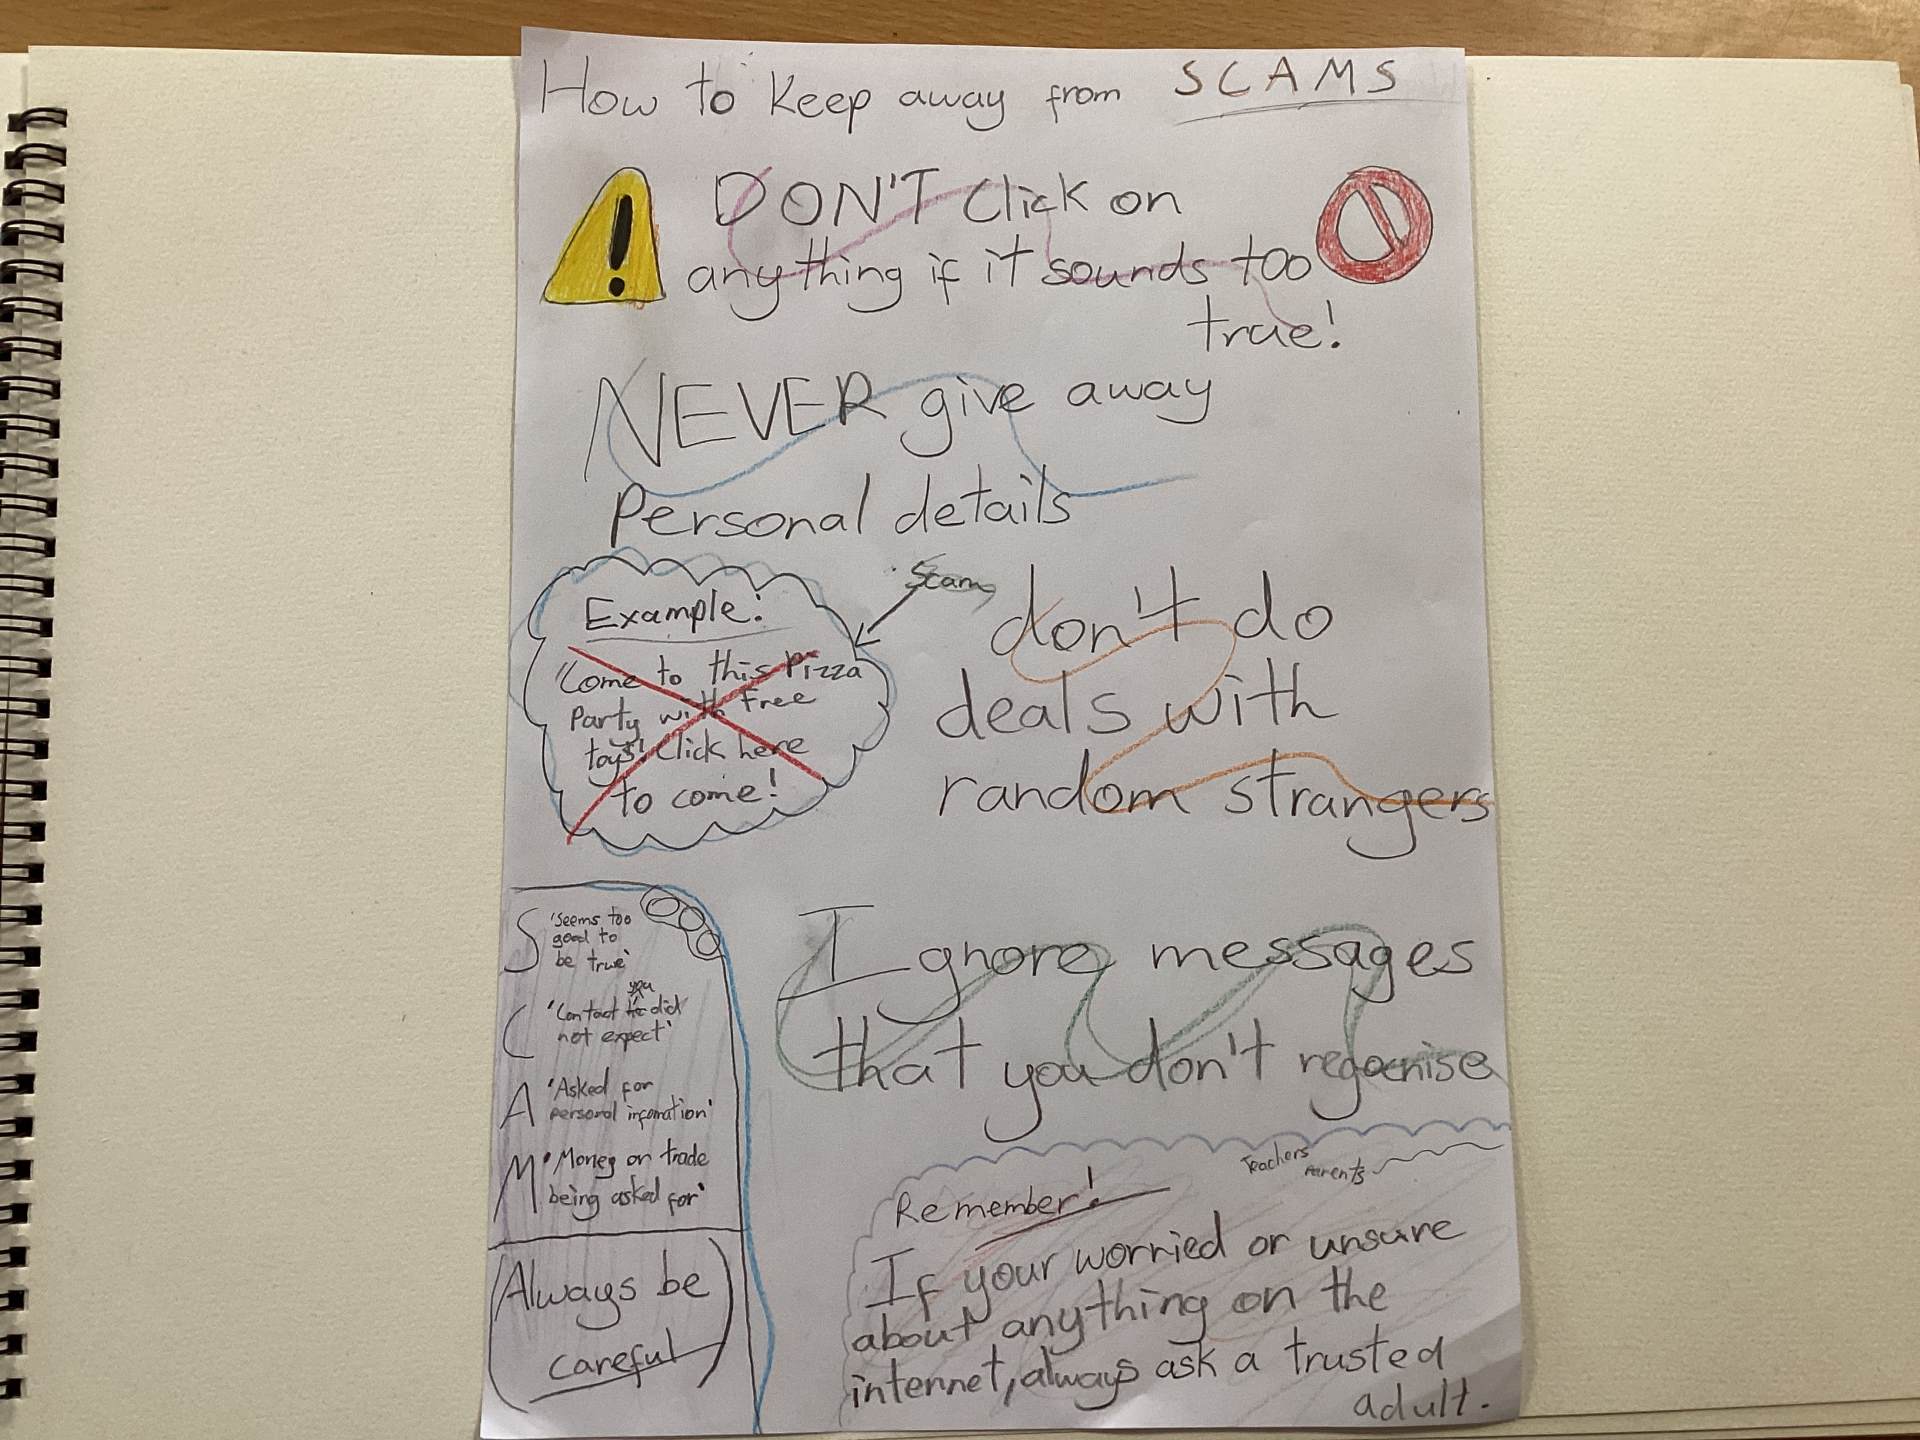 How to keep away from SCAMS
DON'T click on
anything if it sounds too
true!
NEVER give away
Personal details
Scam
Example!
'Come to this Pizza
Party with Free
toys! Click here
to come!
don't do
deals with
random strangers
S 'Seems too
good to
be true'
you
C 'Contact did
not expect'
A 'Asked for
personal infomation'
M 'Money or trade
being asked for'
(Always be
careful)
Ignore messages
that you don't
Teachers
Parents
Remember!
If your worried or unsure
about anything on the
internet, always ask a trusted
adult.